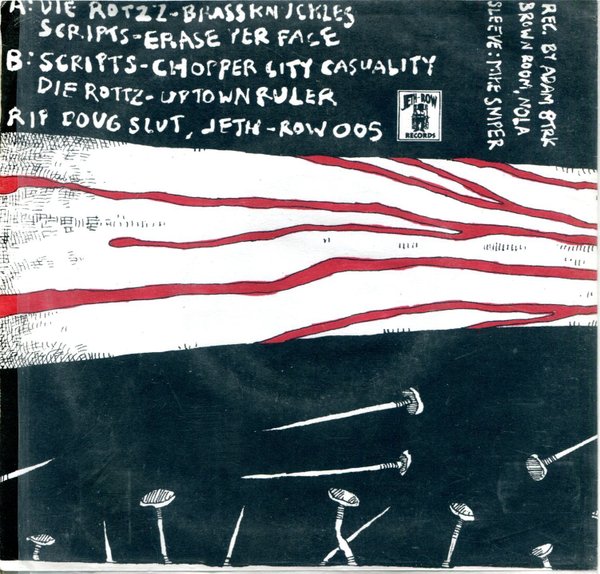 A: DIE ROTZZ-BRASSKNUCKLES
SCRIPTS-ERASE YER FACE
B: SCRIPTS-CHOPPER CITY CASUALITY
DIE ROTTZ-UPTOWN RULER
RIP DOUG SLUT, JETH-ROW 005
JETH-ROW
RECORDS
REC. BY ADAM
BROWN ROOM, NOLA
SLEEVE: MIKE SNIPER